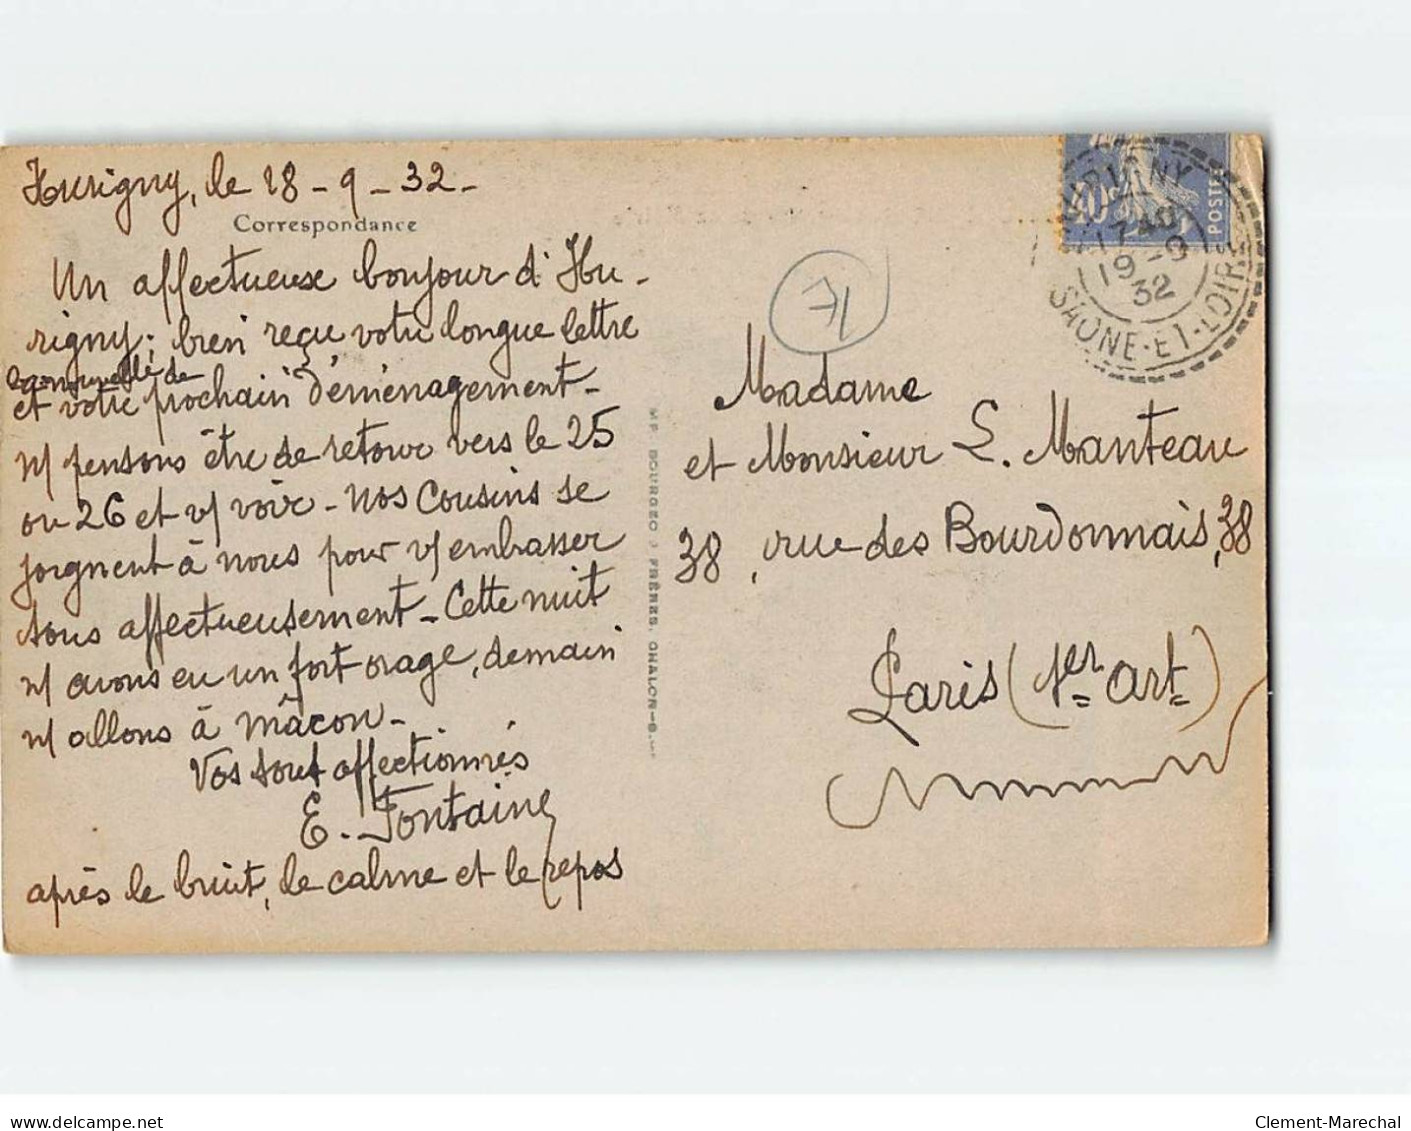 Hurigny, le 18 - 9 - 32 -
Correspondance
Un affectueux bonjour d'Hu-
rigny; bien reçu votre longue lettre
la nouvelle de
et votre prochain déménagement -
n/ pensons être de retour vers le 25
ou 26 et v/ voir - nos cousins se
joignent à nous pour v/ embrasser
tous affectueusement - Cette nuit
n/ avons eu un fort orage, demain
n/ allons à Mâcon -
Vos tout affectionnés
E. Fontaine
après le bruit, le calme et le repos
MP. BOURGEOIS FRÈRES, CHALON-S.
40c
POSTES
HURIGNY
17 40
19 - 9
32
SAONE-ET-LOIRE
Madame
et Monsieur L. Manteau
38, rue des Bourdonnais, 38
Paris (1er art)
www.delcampe.net
Clement-Marechal